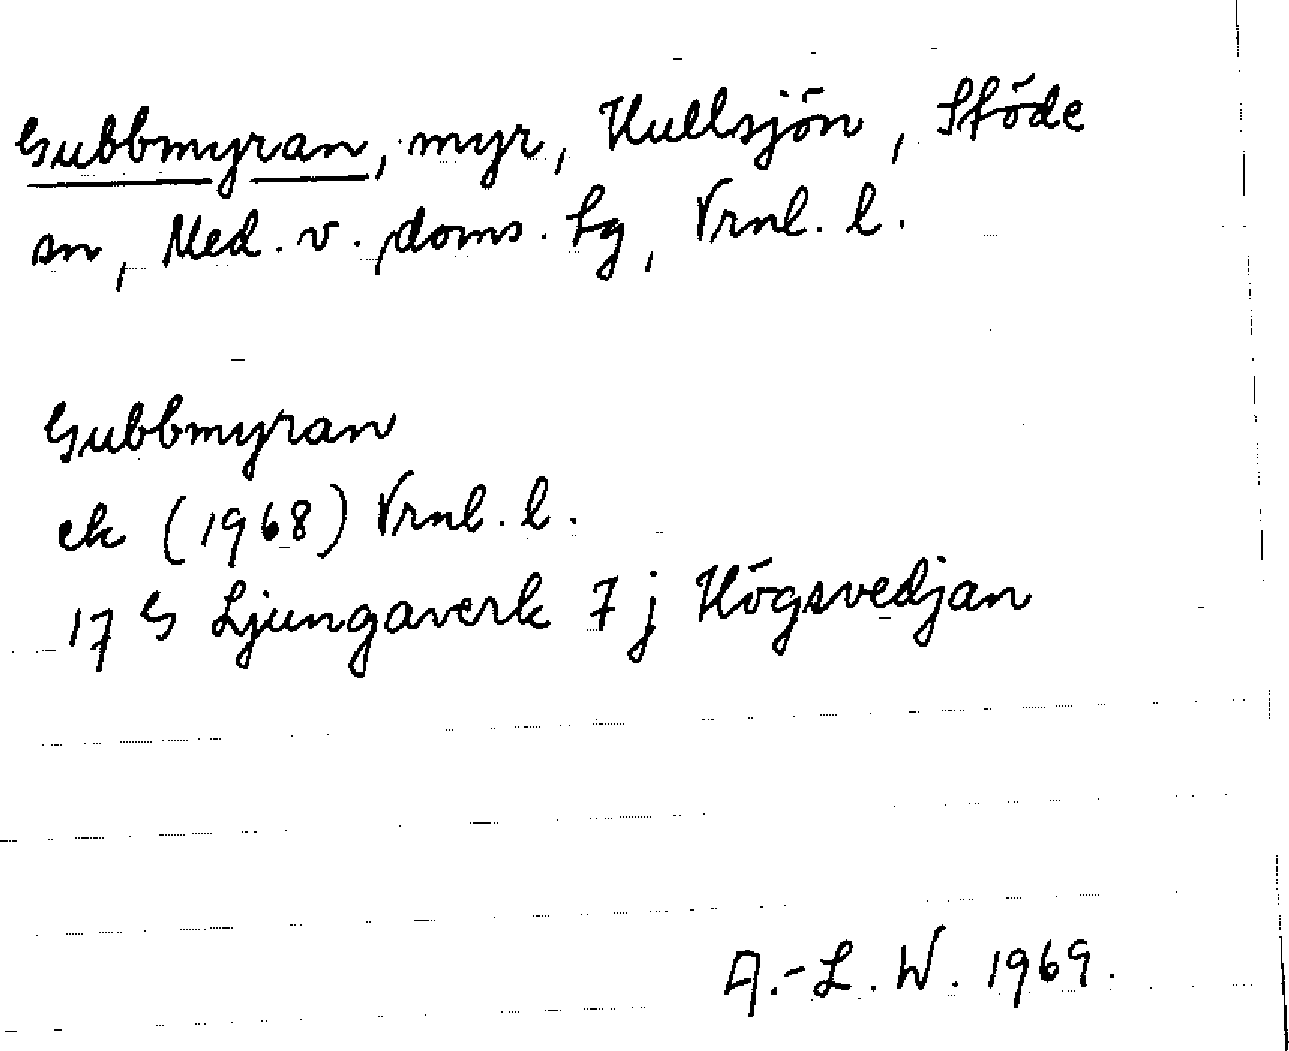 Gubbmyran, myr, Hullsjön, Stöde
sn, Med. v. doms. Lg, Vrnl. l.
Gubbmyran
ek (1968) Vrnl. l.
17 G Ljungaverk 7 j Högsvedjan
A.-L. W. 1969.